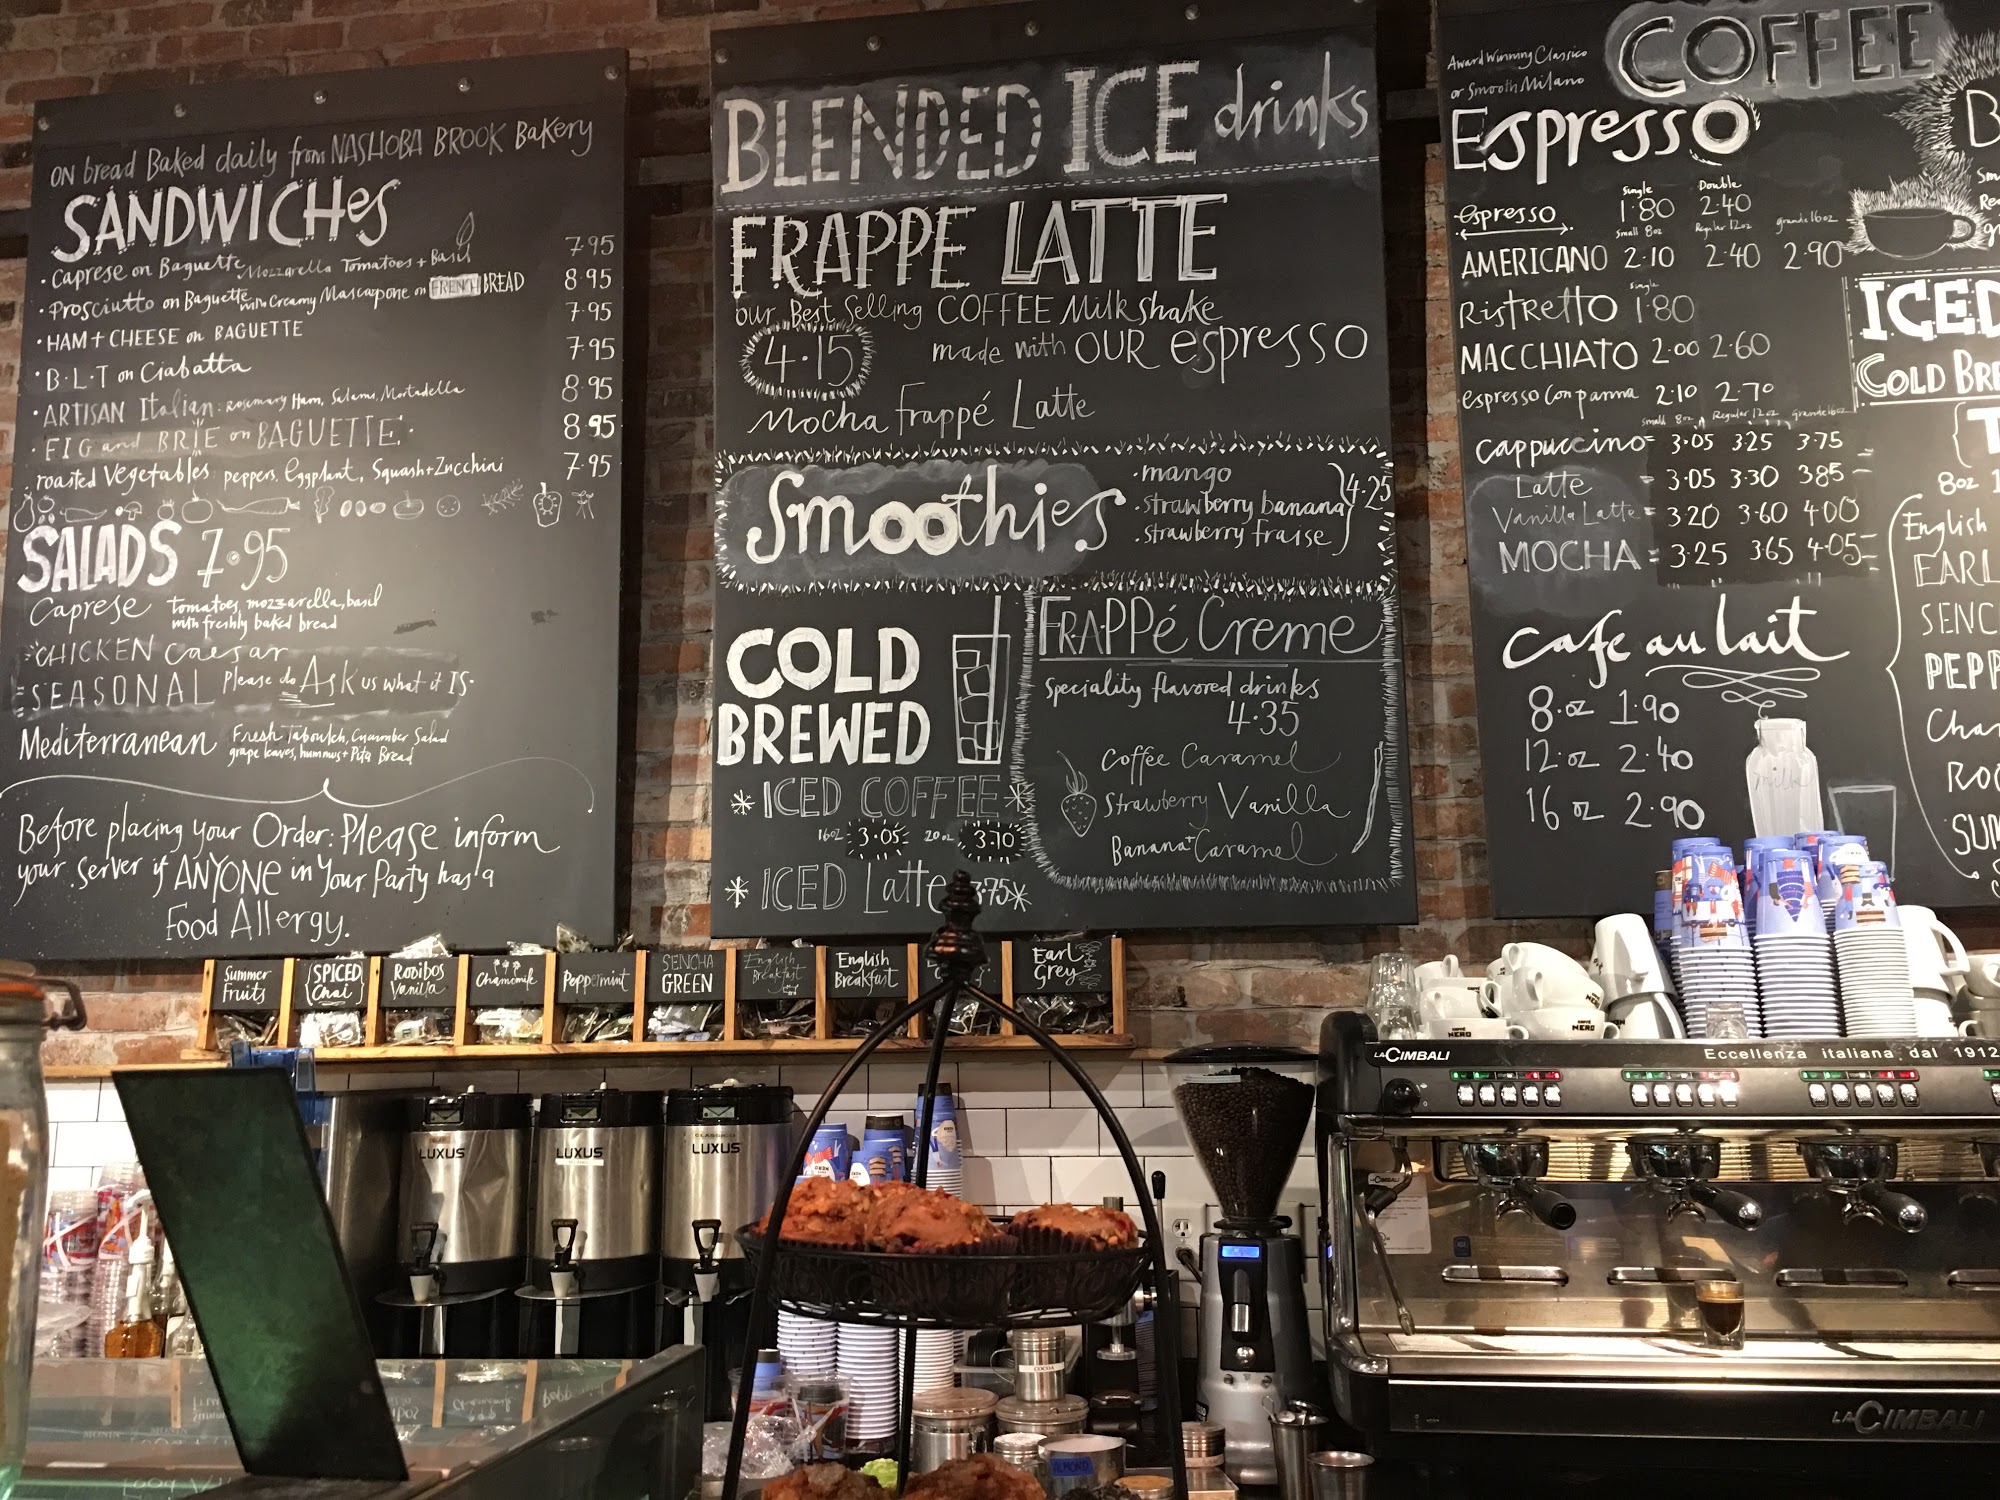 ON bread Baked daily from NASHOBA BROOK Bakery
SANDWICHes
• Caprese on Baguette Mozzarella Tomatoes + Basil 7.95
• Prosciutto on Baguette with Creamy Mascarpone on FRENCH BREAD 8.95
• HAM + CHEESE on BAGUETTE 7.95
• B.L.T on Ciabatta 7.95
• ARTISAN Italian: Rosemary Ham, Salami, Mortadella 8.95
• FIG and BRIE on BAGUETTE • 8.95
• roasted Vegetables: peppers, Eggplant, Squash + Zucchini 7.95
SALADS 7.95
Caprese tomatoes, mozzarella, basil
with freshly baked bread
CHICKEN caesar
SEASONAL Please do Ask us what it IS.
Mediterranean Fresh Tabouleh, Cucumber Salad
grape leaves, hummus + Pita Bread
Before placing your Order: Please inform
your server if ANYONE in Your Party has a
Food Allergy.
BLENDED ICE drinks
FRAPPE LATTE
our Best Selling COFFEE Milkshake
4.15 made with OUR espresso
Mocha frappé Latte
Smoothies
• mango
• strawberry banana 4.25
• strawberry fraise
COLD
BREWED
ICED COFFEE
16oz 3.05 20oz 3.70
ICED Latte 3.75
FRAPPé Creme
Speciality flavored drinks
4.35
Coffee Caramel
Strawberry Vanilla
Banana + Caramel
COFFEE
Award Winning Classico
or Smooth Milano
Espresso
Single Double
espresso 1.80 2.40
Small 8oz Regular 12oz grande 16oz
AMERICANO 2.10 2.40 2.90
Single
Ristretto 1.80
MACCHIATO 2.00 2.60
espresso Con panna 2.10 2.70
small 8oz Regular 12oz grande 16oz
cappuccino = 3.05 3.25 3.75
Latte = 3.05 3.30 3.85
Vanilla Latte = 3.20 3.60 4.00
MOCHA = 3.25 3.65 4.05
cafe au lait
8.oz 1.90
12.oz 2.40
16 oz 2.90
milk
ICED
COLD BRE
8oz
English
EARL
SENC
PEPP
Cha
ROO
SUM
Summer
Fruits
SPICED
Chai
Rooibos
Vanilla
Chamomile
Peppermint
SENCHA
GREEN
English
Breakfast
English
Breakfast
Earl
Grey
CAFFÈ
NERO
CAFFÈ
NERO
LACIMBALI
Eccellenza italiana dal 1912
LUXUS
LUXUS
LUXUS
COCOA
ALMOND
LACIMBALI